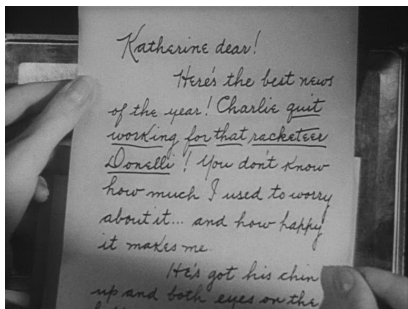 Katherine dear!
Here's the best news
of the year! Charlie quit
working for that racketeer
Donelli! You don't know
how much I used to worry
about it... and how happy
it makes me.
He's got his chin
up and both eyes on the